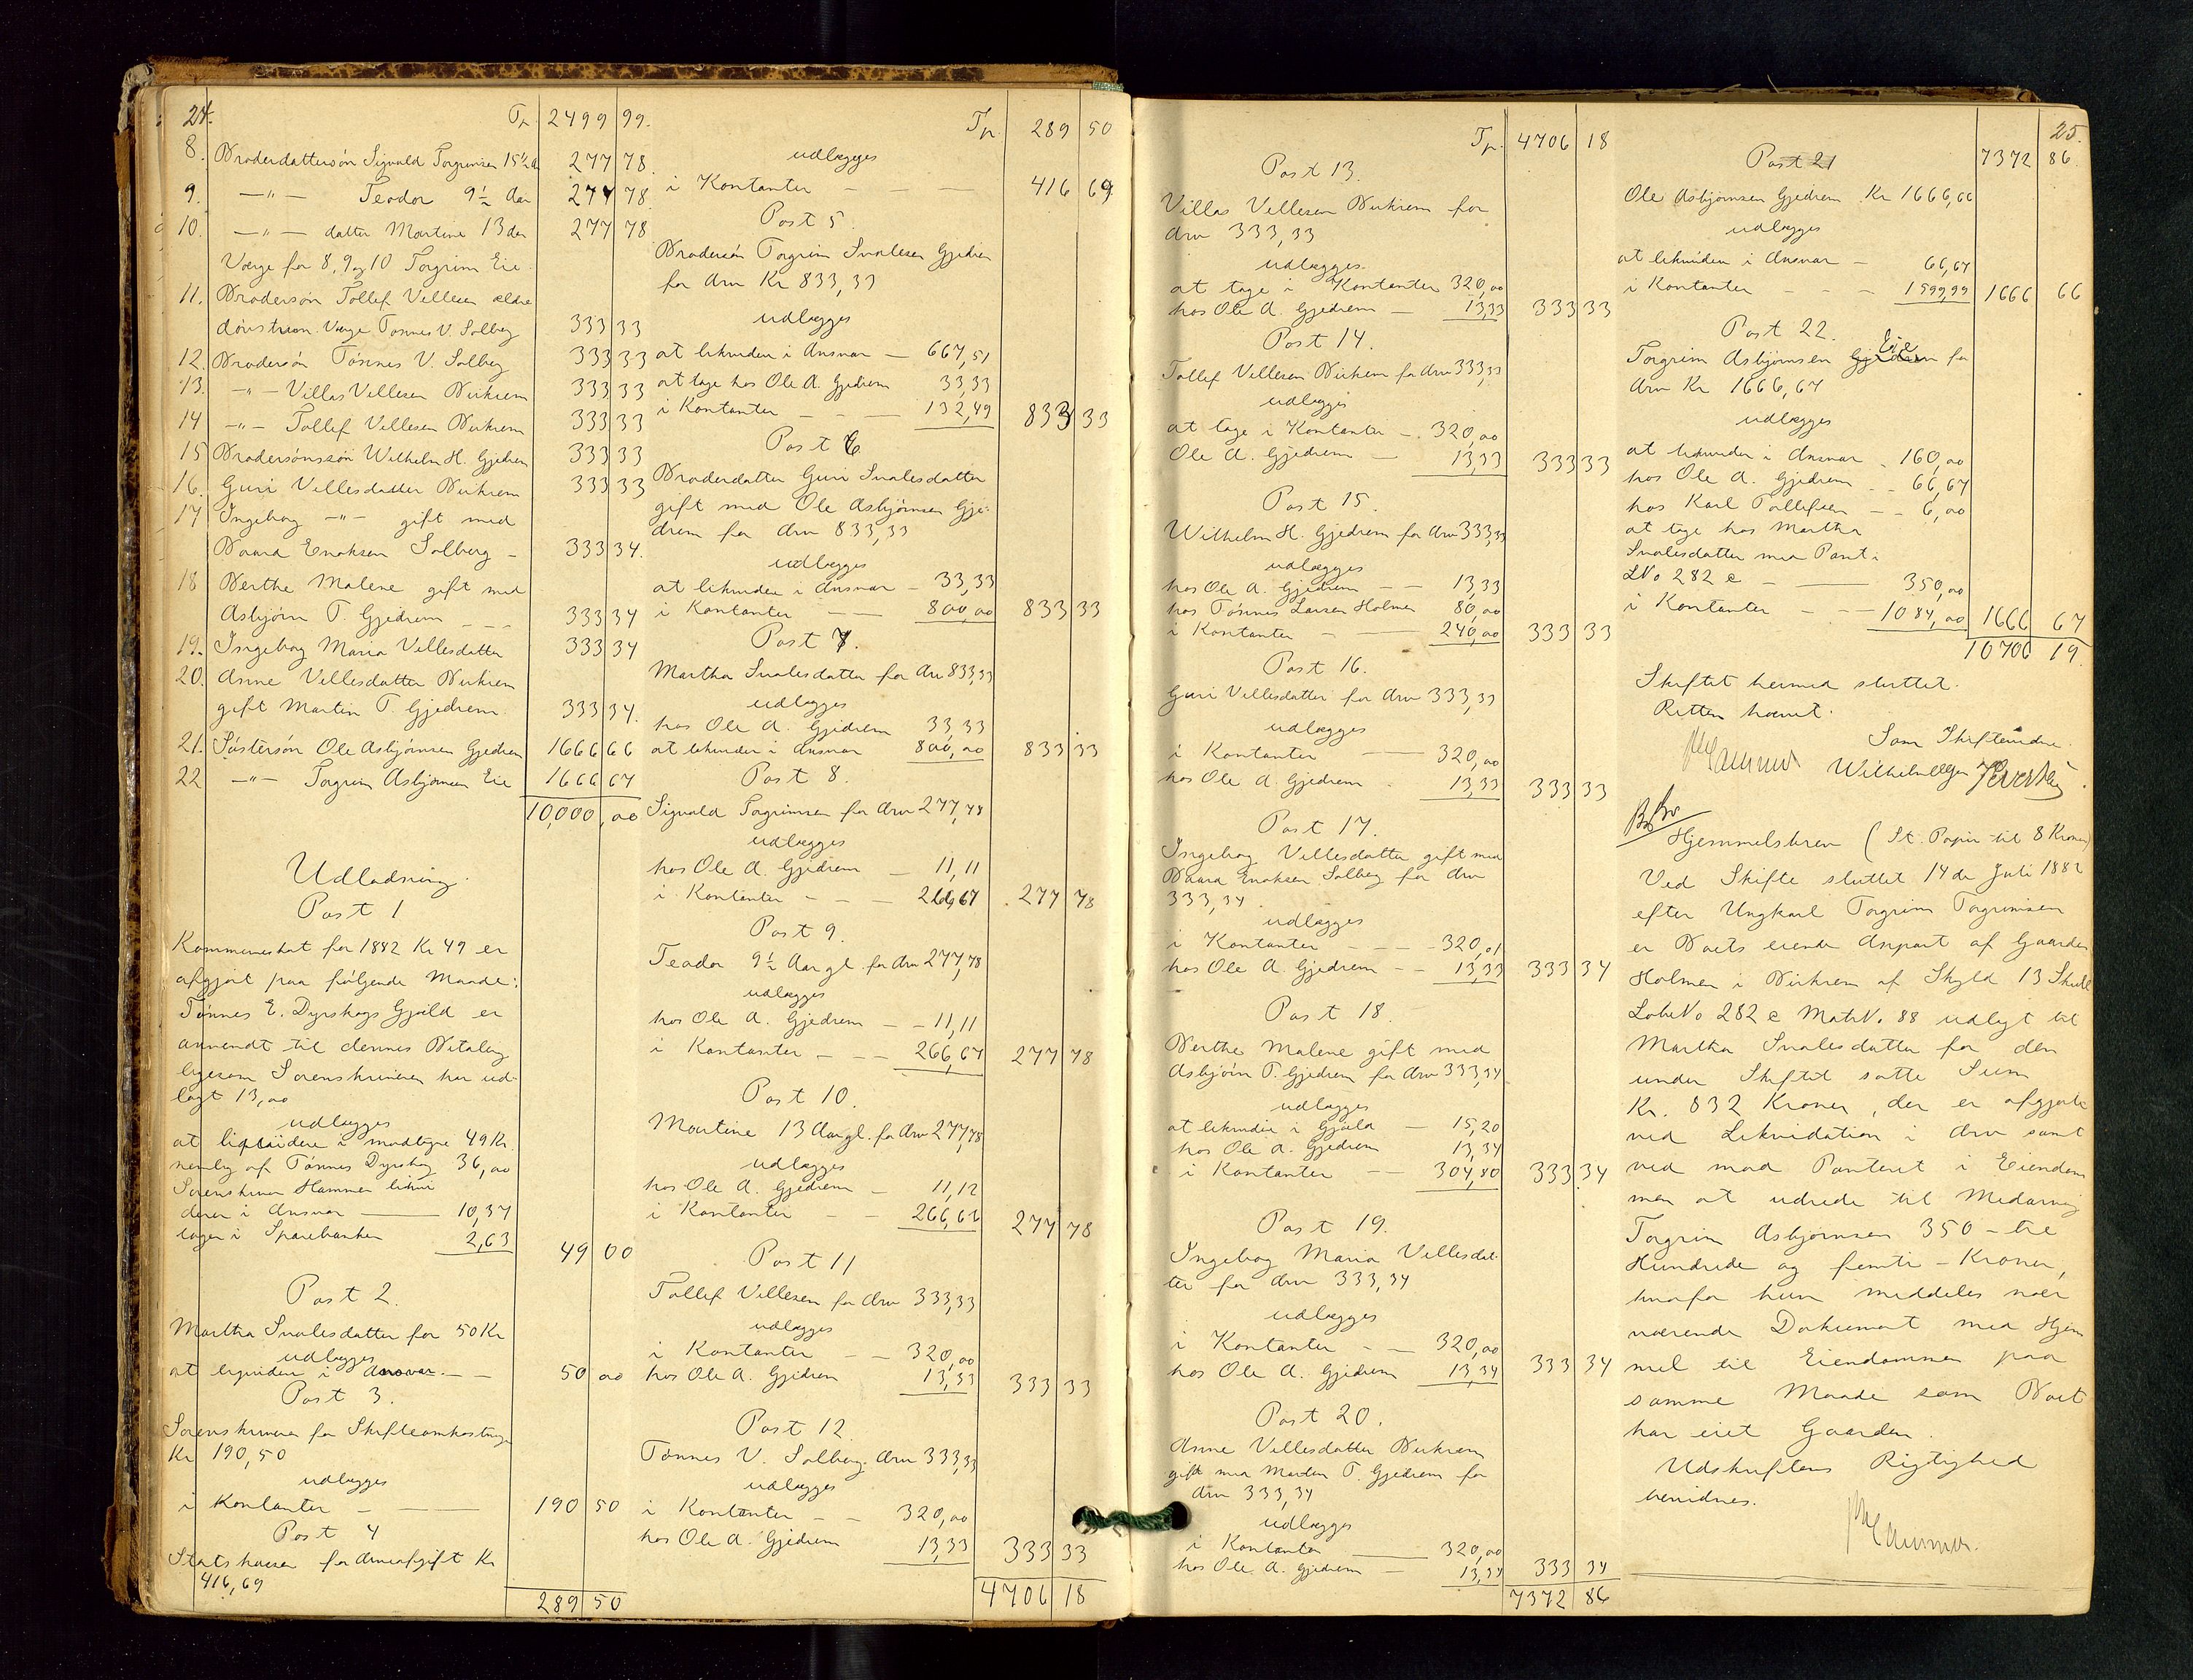 24.
Tr. 2499 99.
8. Broderdattersøn Sigvald Torgrimsen 15½ A 277 78.
9. —"— Teodor 9½ Aar 277 78.
10. —"— datter Martine 13 Aar 277 78
Værge for 8, 9 og 10 Torgrim Eie
11. Brodersøn Tollef Villesen ældre
døvstum. Værge Tønnes V. Solberg 333 33
12. Brodersøn Tønnes V. Solberg 333 33
13. —"— Villas Villesen Birkrem 333 33
14 —"— Tollef Villesen Birkrem 333 33
15 Brodersønssøn Wilhelm H. Gjedrem 333 33
16. Guri Villesdatter Birkrem 333 33
17 Ingeborg —"— gift med
Baard Enoksen Solberg — 333 34.
18 Berthe Malene gift med
Asbjørn T. Gjedrem _ _ _ 333 34
19. Ingeborg Maria Villesdatter 333 34
20. Anne Villesdatter Birkrem
gift Martin T. Gjedrem. 333 34.
21. Søstersøn Ole Asbjørnsen Gjedrem 1666 66
22 —"— Torgrim Asbjørnsen Eie 1666 67
10,000,00
Udlodning.
Post 1
Kommuneskat for 1882 Kr 49 er
afgjort paa følgende Maade:
Tønnes E. Dyrskogs Gjæld er
anvendt til dennes Betaling
ligesom Sorenskriveren har ud-
lagt 13,00
udlægges
at liqvidere i modtagne 49 Kr.
nemlig af Tønnes Dyrskog 36,00
Sorenskriver Hammer likvi
derer i Ansvar ——— 10,37
tages i Sparebanken 2,63
49 00
Post 2.
Martha Svalesdatter for 50 Kr
udlægges
at liqvidere i Ansvar — — 50 00
Post 3.
Sorenskriveren for Skifteomkostninger
Kr 190,50
udlægges
i Kontanter — ——— 190 50
Post 4
Statskassen for Arveafgift Kr
416,69
289 50
Tr. 289 50
udlægges
i Kontanter — — — 416 69
Post 5.
Brodersøn Torgrim Svalesen Gjedrem
for Arv Kr 833,33
udlægges
at likvidere i Ansvar — 667,51
at tage hos Ole A. Gjedrem 33,33
i Kontanter — — — 132,49 833 33
Post 6
Broderdatter Guri Svalesdatter
gift med Ole Asbjørnsen Gje-
drem for Arv 833,33
udlægges
at likvidere i Ansvar — 33,33
i Kontanter — — 800,00 833 33
Post 7.
Martha Svalesdatter for Arv 833,33
udlægges
hos Ole A. Gjedrem 33,33
at likvidere i Ansvar 800,00 833 33
Post 8.
Sigvald Torgrimsen for Arv 277,78
udlægges
hos Ole A. Gjedrem — 11,11
i Kontanter — — — 266,67 277 78
Post 9.
Teodor 9½ Aar gl. for Arv 277,78
udlægges
hos Ole A. Gjedrem — — 11,11
i Kontanter — — — 266,67 277 78
Post 10.
Martine 13 Aar gl. for Arv 277,78
udlægges
hos Ole A. Gjedrem — 11,12
i Kontanter — — 266,66 277 78
Post 11
Tollef Villesen for Arv 333,33
udlægges
i Kontanter — — 320,00
hos Ole A. Gjedrem 13,33 333 33
Post 12
Tønnes V. Solberg. Arv 333,33
udlægges
i Kontanter — — 320,00
hos Ole A. Gjedrem 13,33 333 33
4706 18
Tr. 4706 18
Post 13.
Villas Villesen Birkrem for
Arv 333,33
udlægges.
at tage i Kontanter 320,00
hos Ole A. Gjedrem — 13,33 333 33
Post 14.
Tollef Villesen Birkrem for Arv 333,33
udlægges
at tage i Kontanter — 320,00
Ole A. Gjedrem — 13,33 333 33
Post 15.
Wilhelm H. Gjedrem for Arv 333,33
udlægges
hos Ole A. Gjedrem — — 13,33
hos Tønnes Larsen Holmen 80,00
i Kontanter — — 240,00 333 33
Post 16.
Guri Villesdatter for Arv 333,33
udlægges
i Kontanter — 320,00
hos Ole A. Gjedrem . 13,33 333 33
Post 17.
Ingeborg Villesdatter gift med
Baard Enoksen Solberg for Arv
333,34.
udlægges
i Kontanter — — — 320,01
hos Ole A. Gjedrem — — 13,33 333 34
Post 18.
Berthe Malene gift med
Asbjørn T. Gjedrem for Arv 333,34.
udlægges
at likvidere i Gjæld — 15,20
hos Ole A. Gjedrem 13,34
i Kontanter — — 304,80 333 34
Post 19.
Ingeborg Maria Villesdat-
ter for Arv 333,34
udlægges
i Kontanter — — 320,00
hos Ole A. Gjedrem — 13,34 333 34
Post 20.
Anne Villesdatter Birkrem
gift med Martin T. Gjedrem for
Arv 333,34
udlægges
i Kontanter ——— 320,00
hos Ole A. Gjedrem — 13,34 333 34
7372 86
25.
7372 86.
Post 21
Ole Asbjørnsen Gjedrem Kr 1666,66
udlægges
at likvidere i Ansvar — 66,67
i Kontanter — — — 1599,99 1666 66
Post 22.
Torgrim Asbjørnsen Gjedrem Eie for
Arv Kr 1666,67
udlægges
at likvidere i Ansvar . 160,00
hos Ole A. Gjedrem — — 66,67
hos Karl Tollefsen — — 6,00
at tage hos Martha
Svalesdatter mod Pant i
LNo 282 c — ——— 350,00
i Kontanter — — — 1084,00 1666 67
10706 19.
Skiftet hermed sluttet.
Retten hævet.
Som Skiftevidne
Hammer Wilhelm
Hjemmelsbrev (St. Papir til 8 Kroner)
Ved Skifte sluttet 14de Juli 1882
efter Ungkarl Torgrim Torgrimsen
er Boets eiende Anpart af Gaarden
Holmen i Birkrem af Skyld 13 Skill
LøbeNo 282 c MatrNo 88 udlagt til
Martha Svalesdatter for den
under Skiftet satte Sum
Kr. 832 Kroner, der er afgjorte
ved Likvidation i Arv samt
ved mod Panteret i Eiendom
men at udrede til Medarving
Torgrim Asbjørnsen 350 – tre
Hundrede og femti – Kroner,
hvorfor hun meddeles nær
værende Dokument med Hjem
mel til Eiendommen paa
samme Maade som Boet
har eiet Gaarden.
Udskriftens Rigtighed
bevidnes.
Hammer.